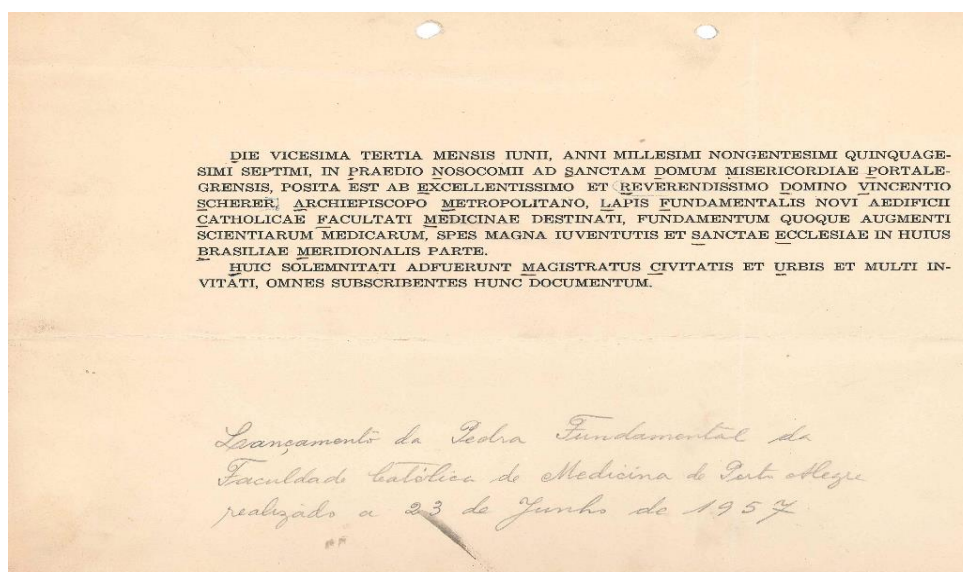 DIE VICESIMA TERTIA MENSIS IUNII, ANNI MILLESIMI NONGENTESIMI QUINQUAGE-
SIMI SEPTIMI, IN PRAEDIO NOSOCOMII AD SANCTAM DOMUM MISERICORDIAE PORTALE-
GRENSIS, POSITA EST AB EXCELLENTISSIMO ET REVERENDISSIMO DOMINO VINCENTIO
SCHERER, ARCHIEPISCOPO METROPOLITANO, LAPIS FUNDAMENTALIS NOVI AEDIFICII
CATHOLICAE FACULTATI MEDICINAE DESTINATI, FUNDAMENTUM QUOQUE AUGMENTI
SCIENTIARUM MEDICARUM, SPES MAGNA IUVENTUTIS ET SANCTAE ECCLESIAE IN HUIUS
BRASILIAE MERIDIONALIS PARTE.
HUIC SOLEMNITATI ADFUERUNT MAGISTRATUS CIVITATIS ET URBIS ET MULTI IN-
VITATI, OMNES SUBSCRIBENTES HUNC DOCUMENTUM.
Lançamento da Pedra Fundamental da
Faculdade Católica de Medicina de Porto Alegre
realizado a 23 de Junho de 1957